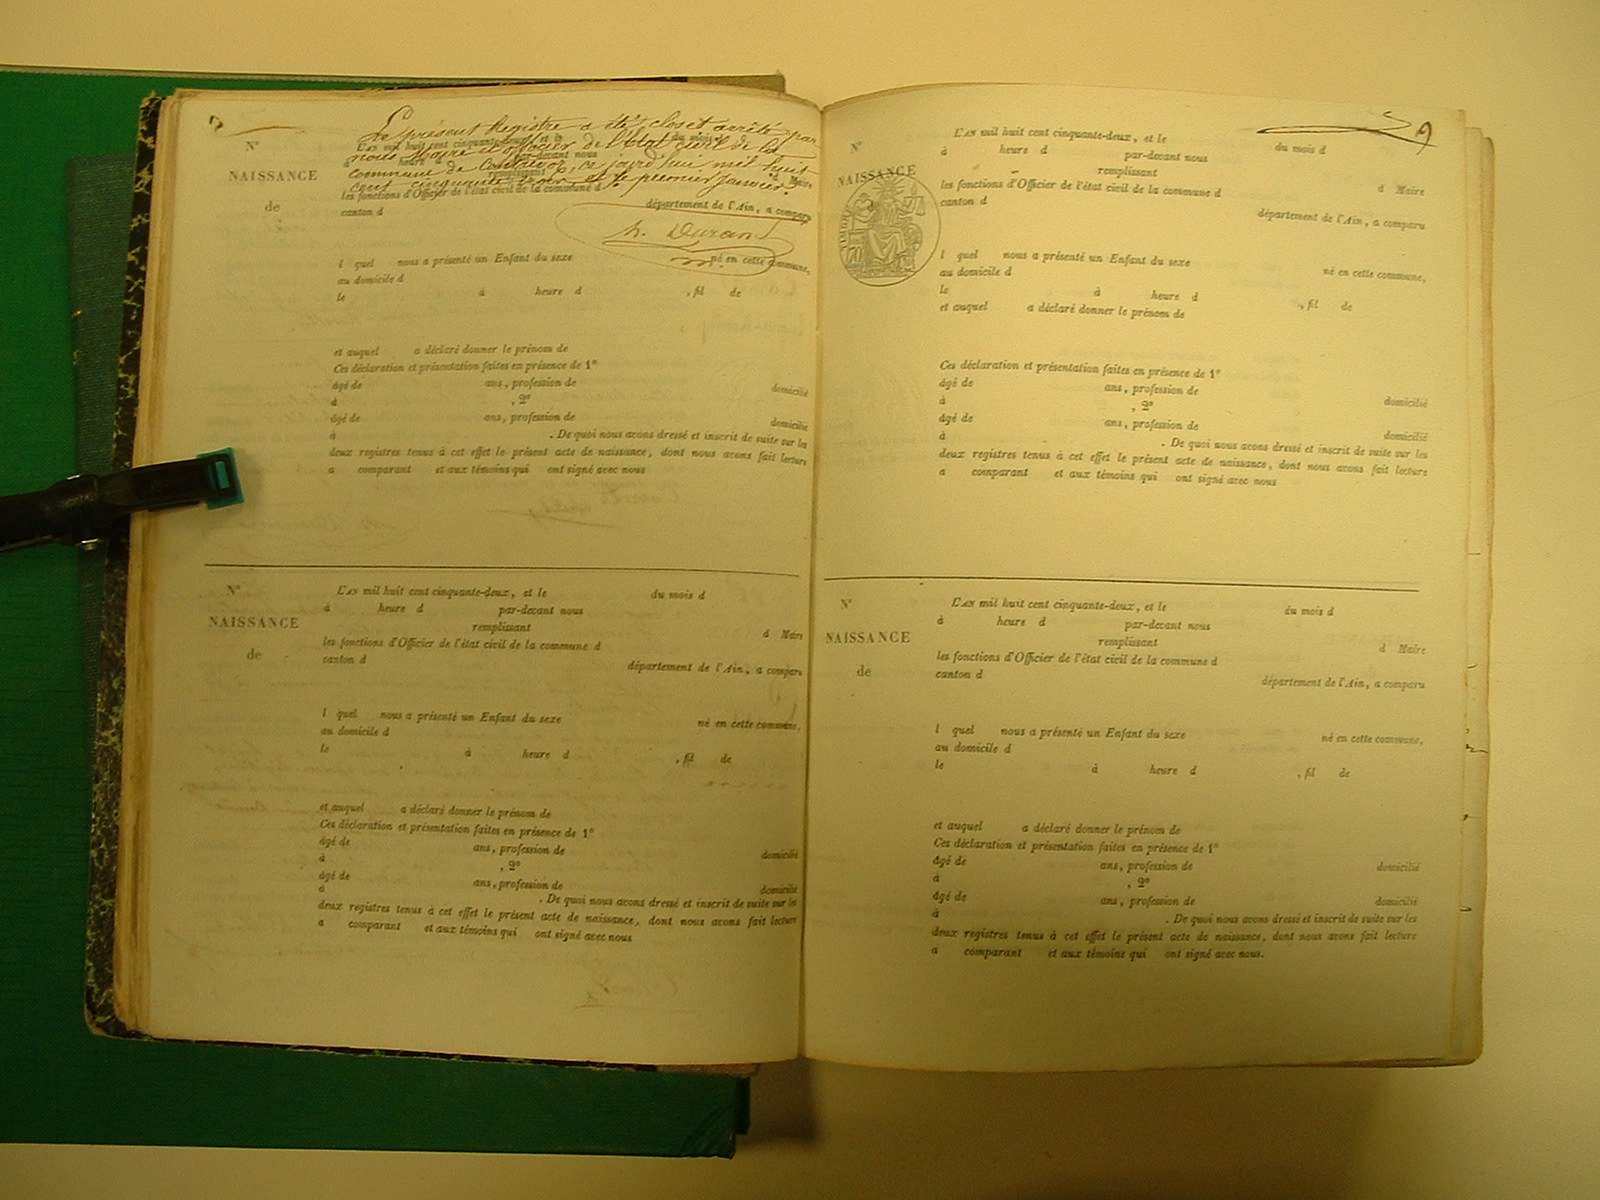 Le présent Registre a été clos et arrêté par
nous Maire et officier de l'Etat civil de la
commune de Contrevoz, ce jourd'hui mil huit
cent cinquante trois et le premier Janvier.
h. Durand
m.
N°
NAISSANCE
de
L'AN mil huit cent cinquante-deux, et le du mois d
à heure d par-devant nous
remplissant d Maire
les fonctions d'Officier de l'état civil de la commune d
canton d département de l'Ain, a comparu
l quel nous a présenté un Enfant du sexe né en cette commune,
au domicile d
le à heure d , fil de
et auquel a déclaré donner le prénom de
Ces déclaration et présentation faites en présence de 1°
âgé de ans, profession de domicilié
à , 2°
âgé de ans, profession de domicilié
à . De quoi nous avons dressé et inscrit de suite sur les
deux registres tenus à cet effet le présent acte de naissance, dont nous avons fait lecture
a comparant et aux témoins qui ont signé avec nous
N°
NAISSANCE
de
L'AN mil huit cent cinquante-deux, et le du mois d
à heure d par-devant nous
remplissant d Maire
les fonctions d'Officier de l'état civil de la commune d
canton d département de l'Ain, a comparu
l quel nous a présenté un Enfant du sexe né en cette commune,
au domicile d
le à heure d , fil de
et auquel a déclaré donner le prénom de
Ces déclaration et présentation faites en présence de 1°
âgé de ans, profession de domicilié
à , 2°
âgé de ans, profession de domicilié
à . De quoi nous avons dressé et inscrit de suite sur les
deux registres tenus à cet effet le présent acte de naissance, dont nous avons fait lecture
a comparant et aux témoins qui ont signé avec nous
9
N°
NAISSANCE
TIMBRE
L'AN mil huit cent cinquante-deux, et le du mois d
à heure d par-devant nous
remplissant d Maire
les fonctions d'Officier de l'état civil de la commune d
canton d département de l'Ain, a comparu
l quel nous a présenté un Enfant du sexe né en cette commune,
au domicile d
le à heure d , fil de
et auquel a déclaré donner le prénom de
Ces déclaration et présentation faites en présence de 1°
âgé de ans, profession de domicilié
à , 2°
âgé de ans, profession de domicilié
à . De quoi nous avons dressé et inscrit de suite sur les
deux registres tenus à cet effet le présent acte de naissance, dont nous avons fait lecture
a comparant et aux témoins qui ont signé avec nous
N°
NAISSANCE
de
L'AN mil huit cent cinquante-deux, et le du mois d
à heure d par-devant nous
remplissant d Maire
les fonctions d'Officier de l'état civil de la commune d
canton d département de l'Ain, a comparu
l quel nous a présenté un Enfant du sexe né en cette commune,
au domicile d
le à heure d , fil de
et auquel a déclaré donner le prénom de
Ces déclaration et présentation faites en présence de 1°
âgé de ans, profession de domicilié
à , 2°
âgé de ans, profession de domicilié
à . De quoi nous avons dressé et inscrit de suite sur les
deux registres tenus à cet effet le présent acte de naissance, dont nous avons fait lecture
a comparant et aux témoins qui ont signé avec nous.